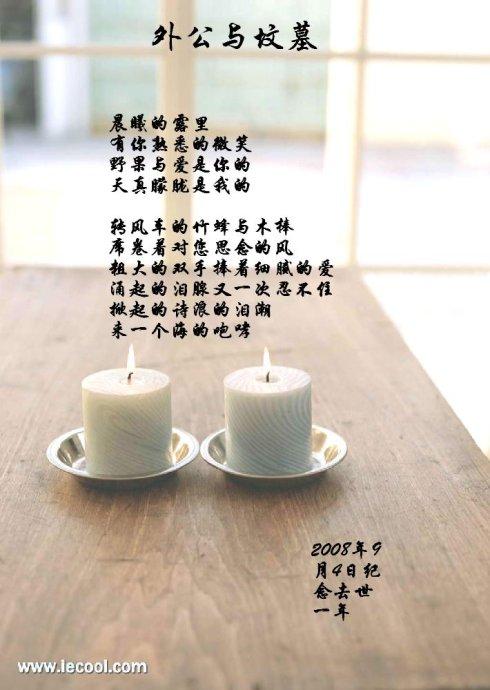 外公与坟墓
晨曦的露里
有你熟悉的微笑
野果与爱是你的
天真朦胧是我的
转风车的竹蜂与木棒
席卷着对您思念的风
粗大的双手捧着细腻的爱
涌起的泪腺又一次忍不住
掀起的诗浪的泪潮
来一个海的咆哮
2008年9
月4日纪
念去世
一年
www.iecool.com